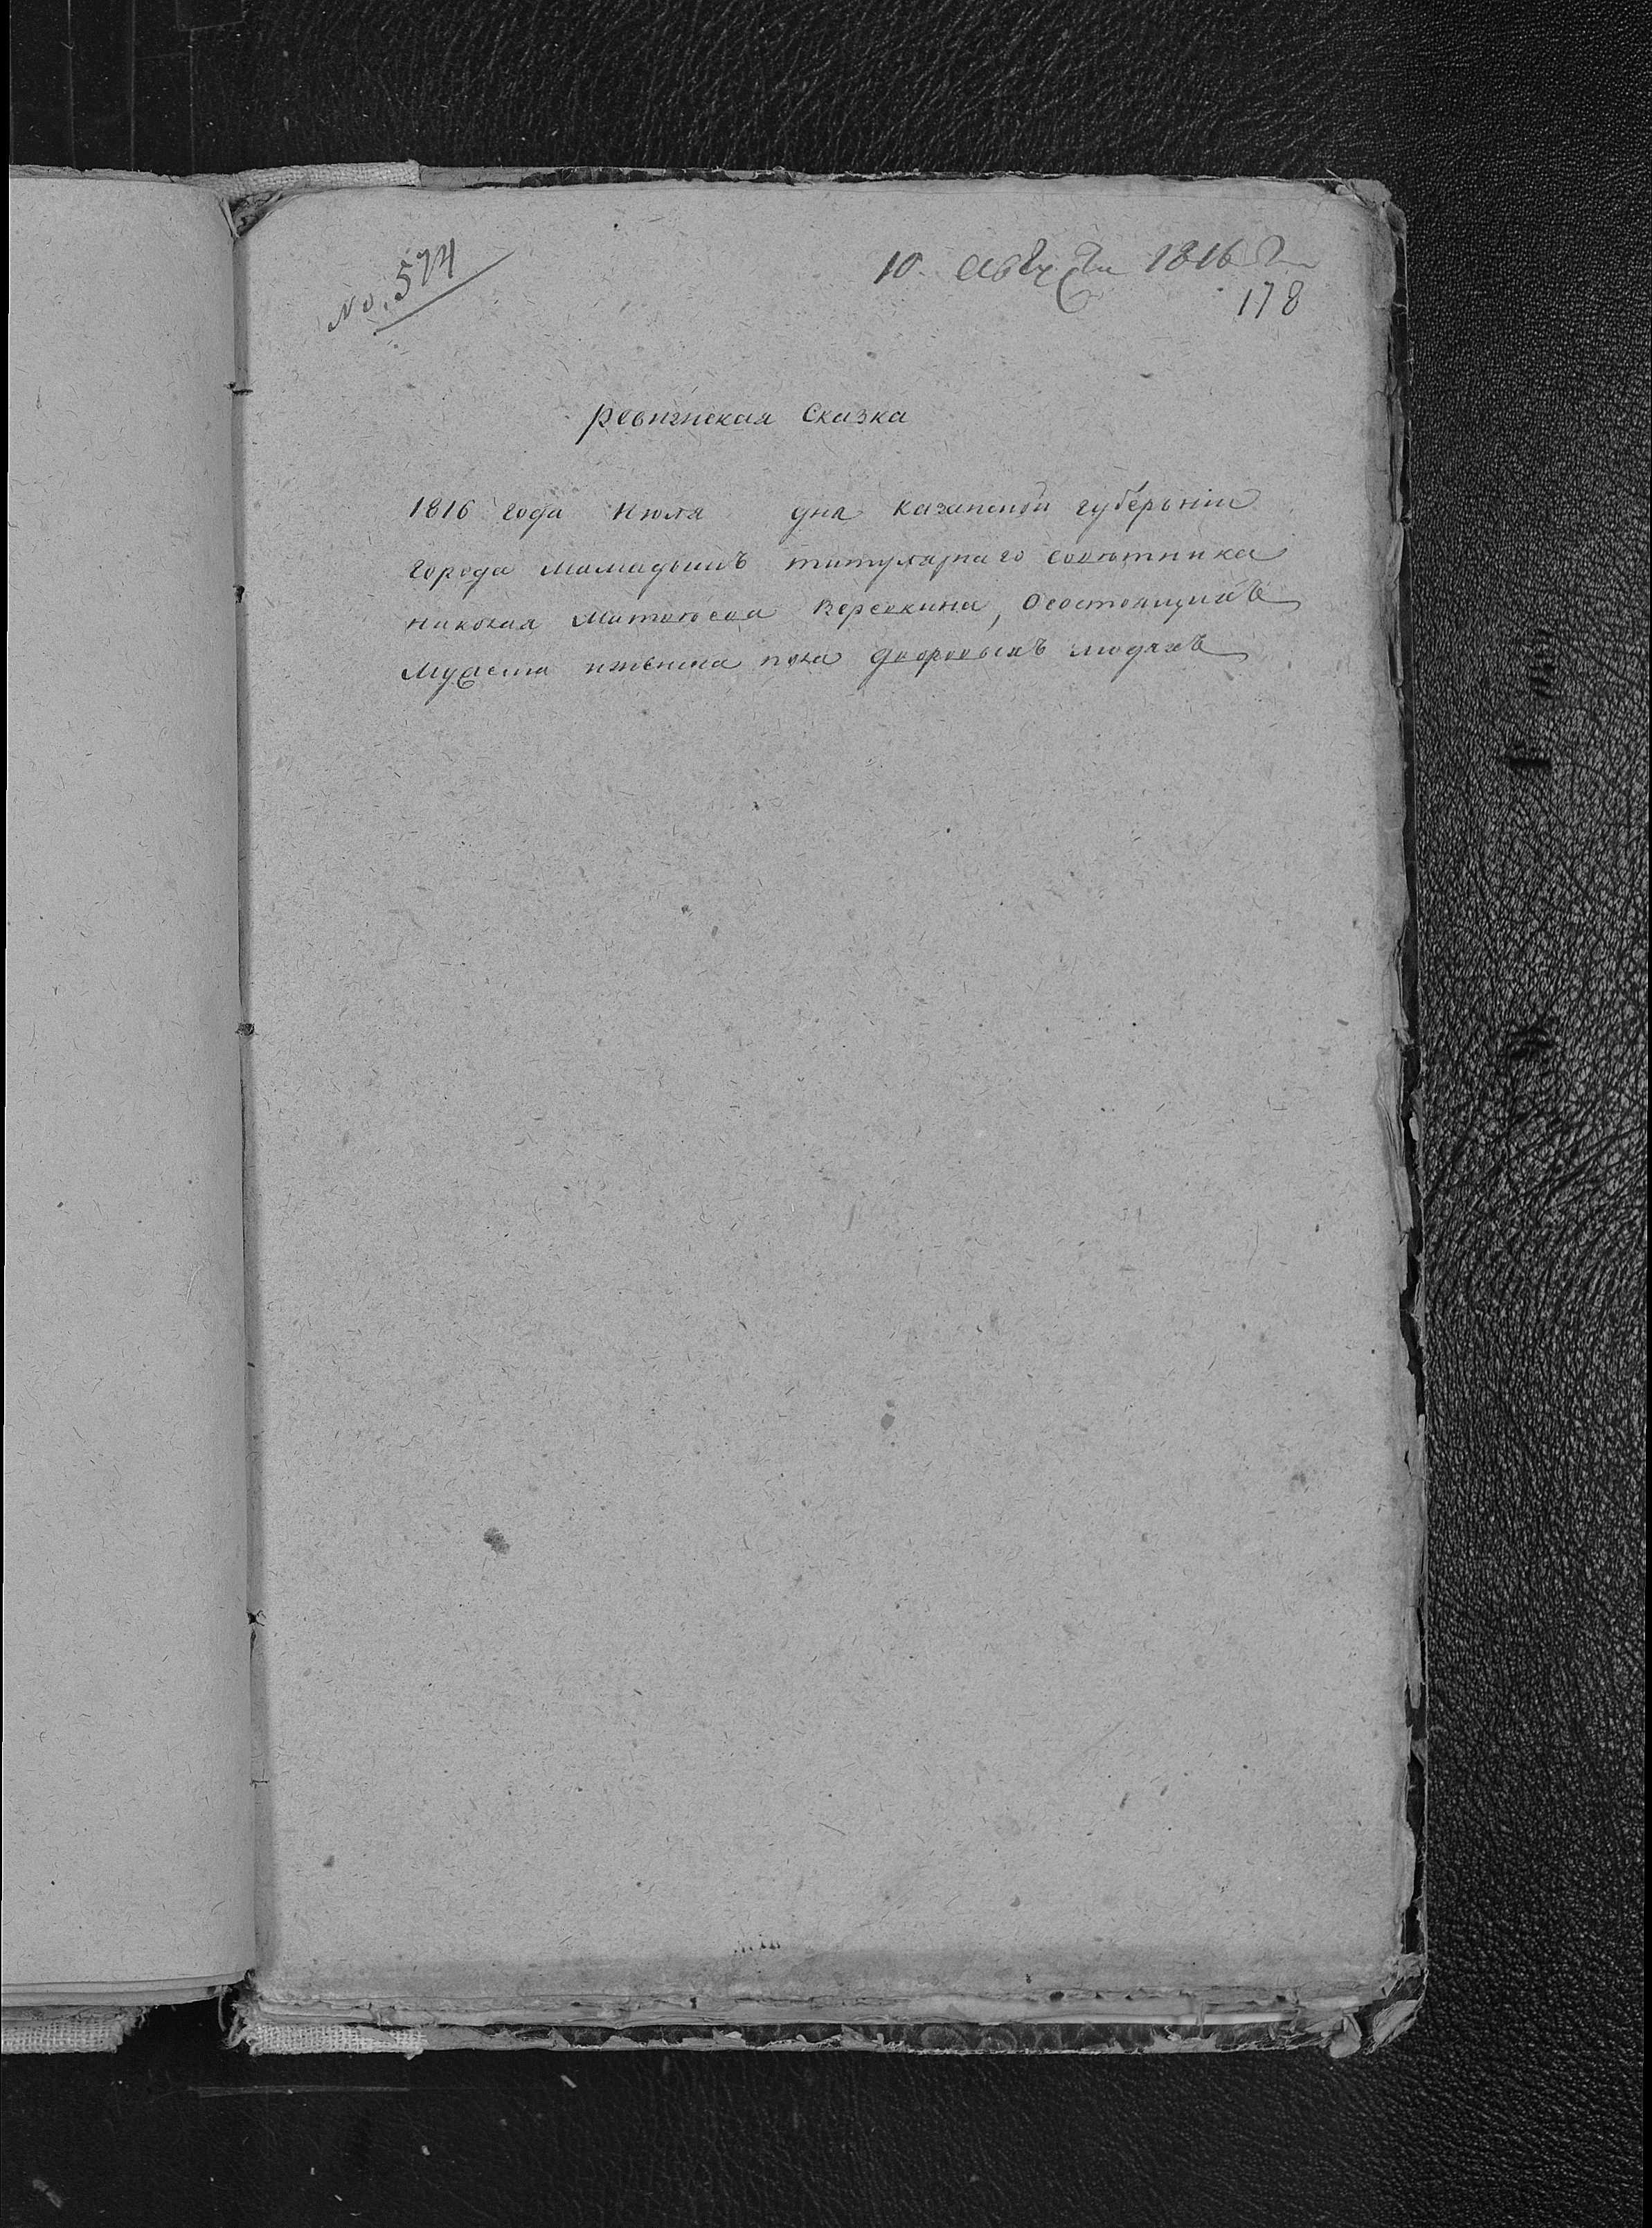 No. 574
10 августа 1816 го
178
Ревизская Сказка
1816 года Июля дня казанской губерьнии
города мамадышъ титулярнаго советника
николая Матвеева Веревкина, Осостоящихъ
Мужеска иженска пола дворовыхъ людяхъ